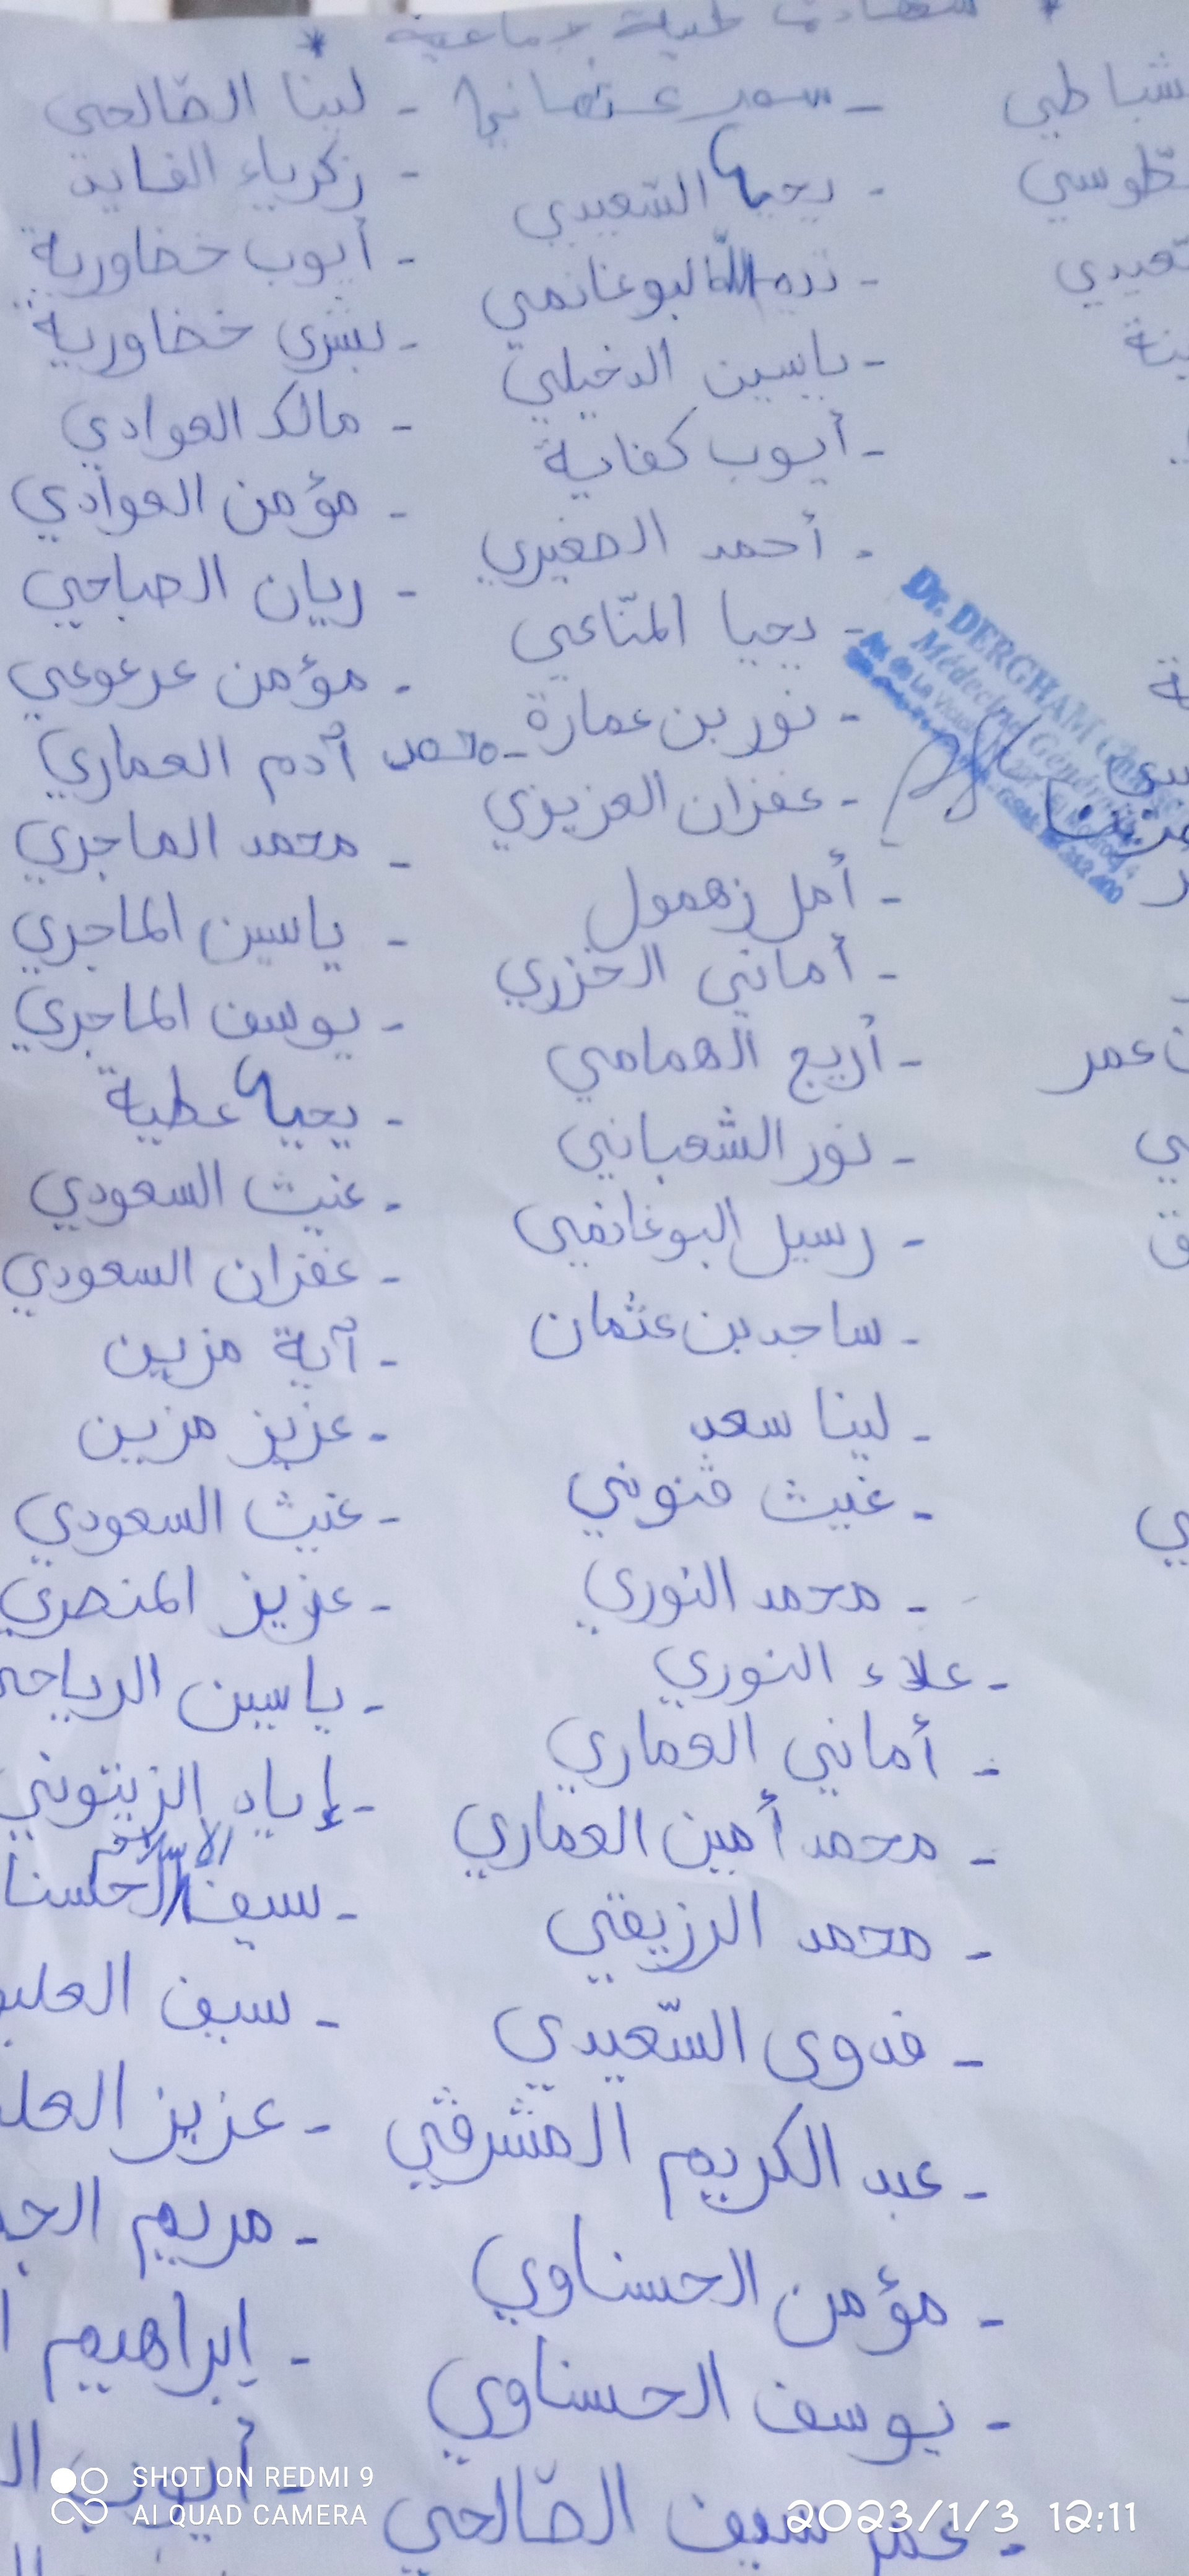 * شهادة طبية جماعية *
شباطي
طوسي
عيدي
ينة
ن عمر
ي
ق
ي
- سمر عثماني
- يحيا السّعيدي
- ياسين الدخيلي
- أيوب كفاية
- أحمد الصغيري
- يحيا المنّاعي
- نور بن عمارة
- غفران العزيزي
- أمل زهمول
- أماني الخزري
- أريج الهمامي
- نور الشعباني
- رسيل البوغانمي
- ساجد بن عثمان
- لينا سعد
- غيث ڨنوني
- محمد النوري
- علاء النوري
- أماني العماري
- محمد أمين العماري
- محمد الرزيقي
- فدوى السّعيدي
- عبد الكريم المشرقي
- مؤمن الحسناوي
- يوسف الحسناوي
- عمر سيف الصّالحي
- لينا الصّالحي
- زكرياء الفايد
- أيوب خضاورية
- بشرى خضاورية
- مالك العوادي
- مؤمن العوادي
- ريان الصباحي
- مؤمن عرعوعي
- محمد آدم العماري
- محمد الماجري
- ياسين الماجري
- يوسف الماجري
- يحيا عطية
- غيث السعودي
- غفران السعودي
- آية مزين
- عزيز مزين
- غيث السعودي
- عزيز المنصري
- ياسين الرياحي
- إياد الزيتوني
- سيف الإسلام الحسنا
- سيف العليو
- عزيز العلـ
- مريم الجـ
- إبراهيم ا
- أيوب الـ
Dr. DERGHAM
Médecine Générale
SHOT ON REDMI 9
AI QUAD CAMERA
2023/1/3 12:11